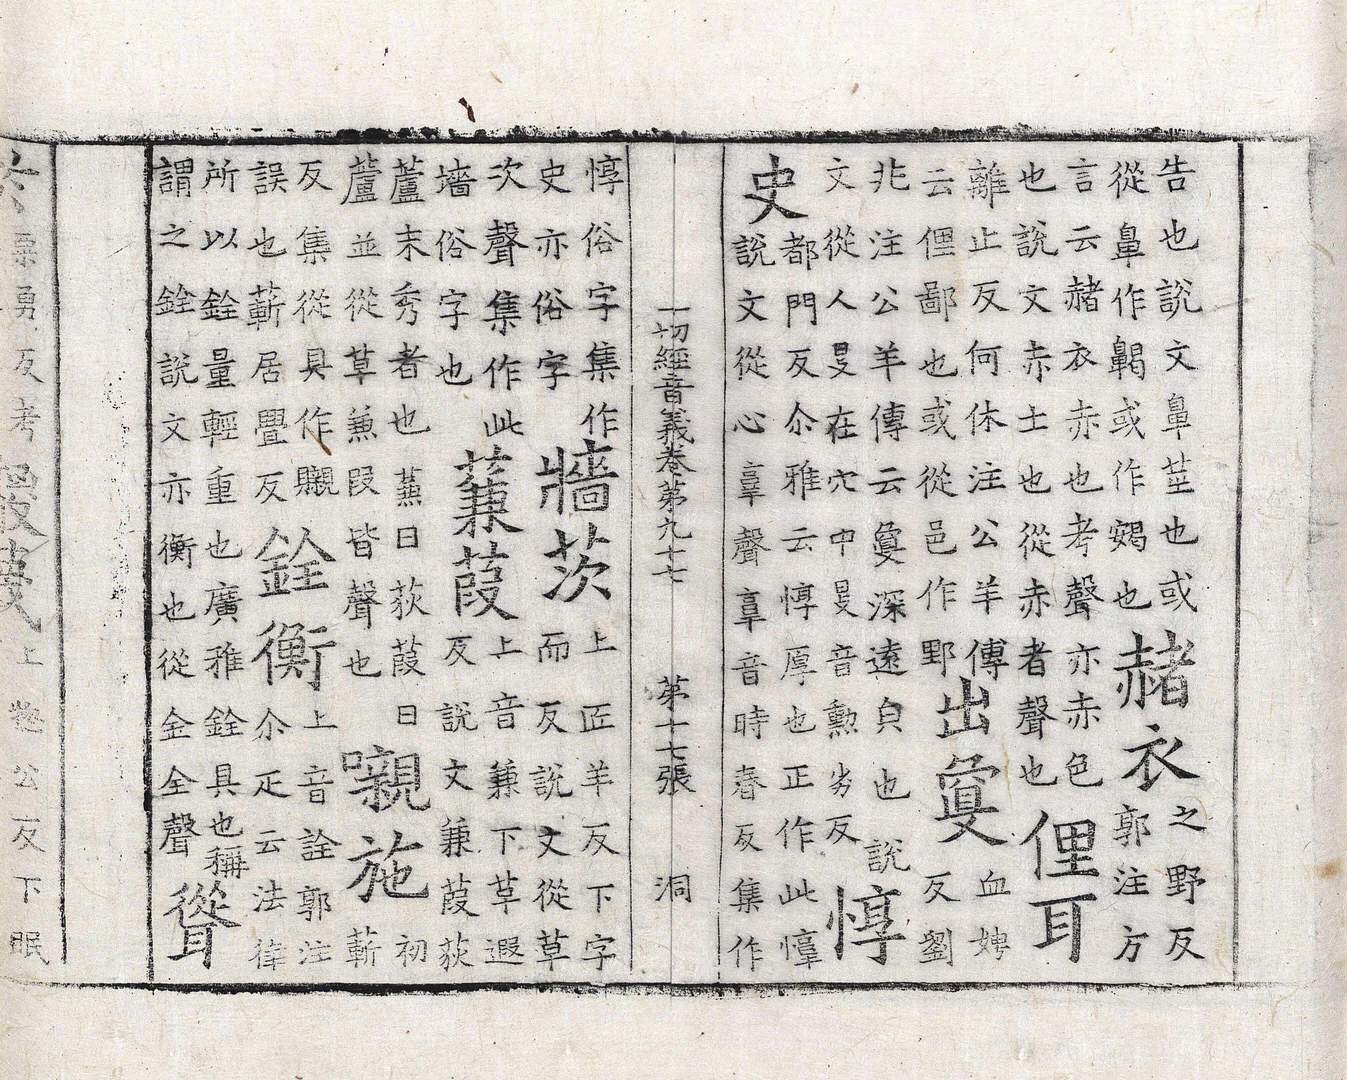 告也說文鼻莖也或
從鼻作鼽或作頞也
赭衣
之野反
郭注方
言云赭衣赤也考聲亦赤色
也說文赤土也從赤者聲也
俚耳
離止反何休注公羊傳
云俚鄙也或從邑作野
出敻
血娉
反劉
兆注公羊傳云敻深遠皃也說
文從人㫐在穴中㫐音勳劣反
惇史
都門反尒雅云惇厚也正作此㦟
說文從心𦎧聲𦎧音時春反集作
一切經音義卷第九十七
第十七張
洞
惇俗字集作
史亦俗字
牆茨
上匠羊反下字
而反說文從草
次聲集作此
墻俗字也
蒹葭
上音兼下草遐
反說文蒹葭荻
蘆末秀者也蒹曰荻葭曰
蘆並從草兼叚皆聲也
嚫施
初
蕲
反集從具作䞋
誤也蕲居舋反
銓衡
上音詮郭注
尒疋云法律
所以銓量輕重也廣雅銓具也稱
謂之銓說文亦衡也從金全聲
聳
勇反考
上
公反下眠